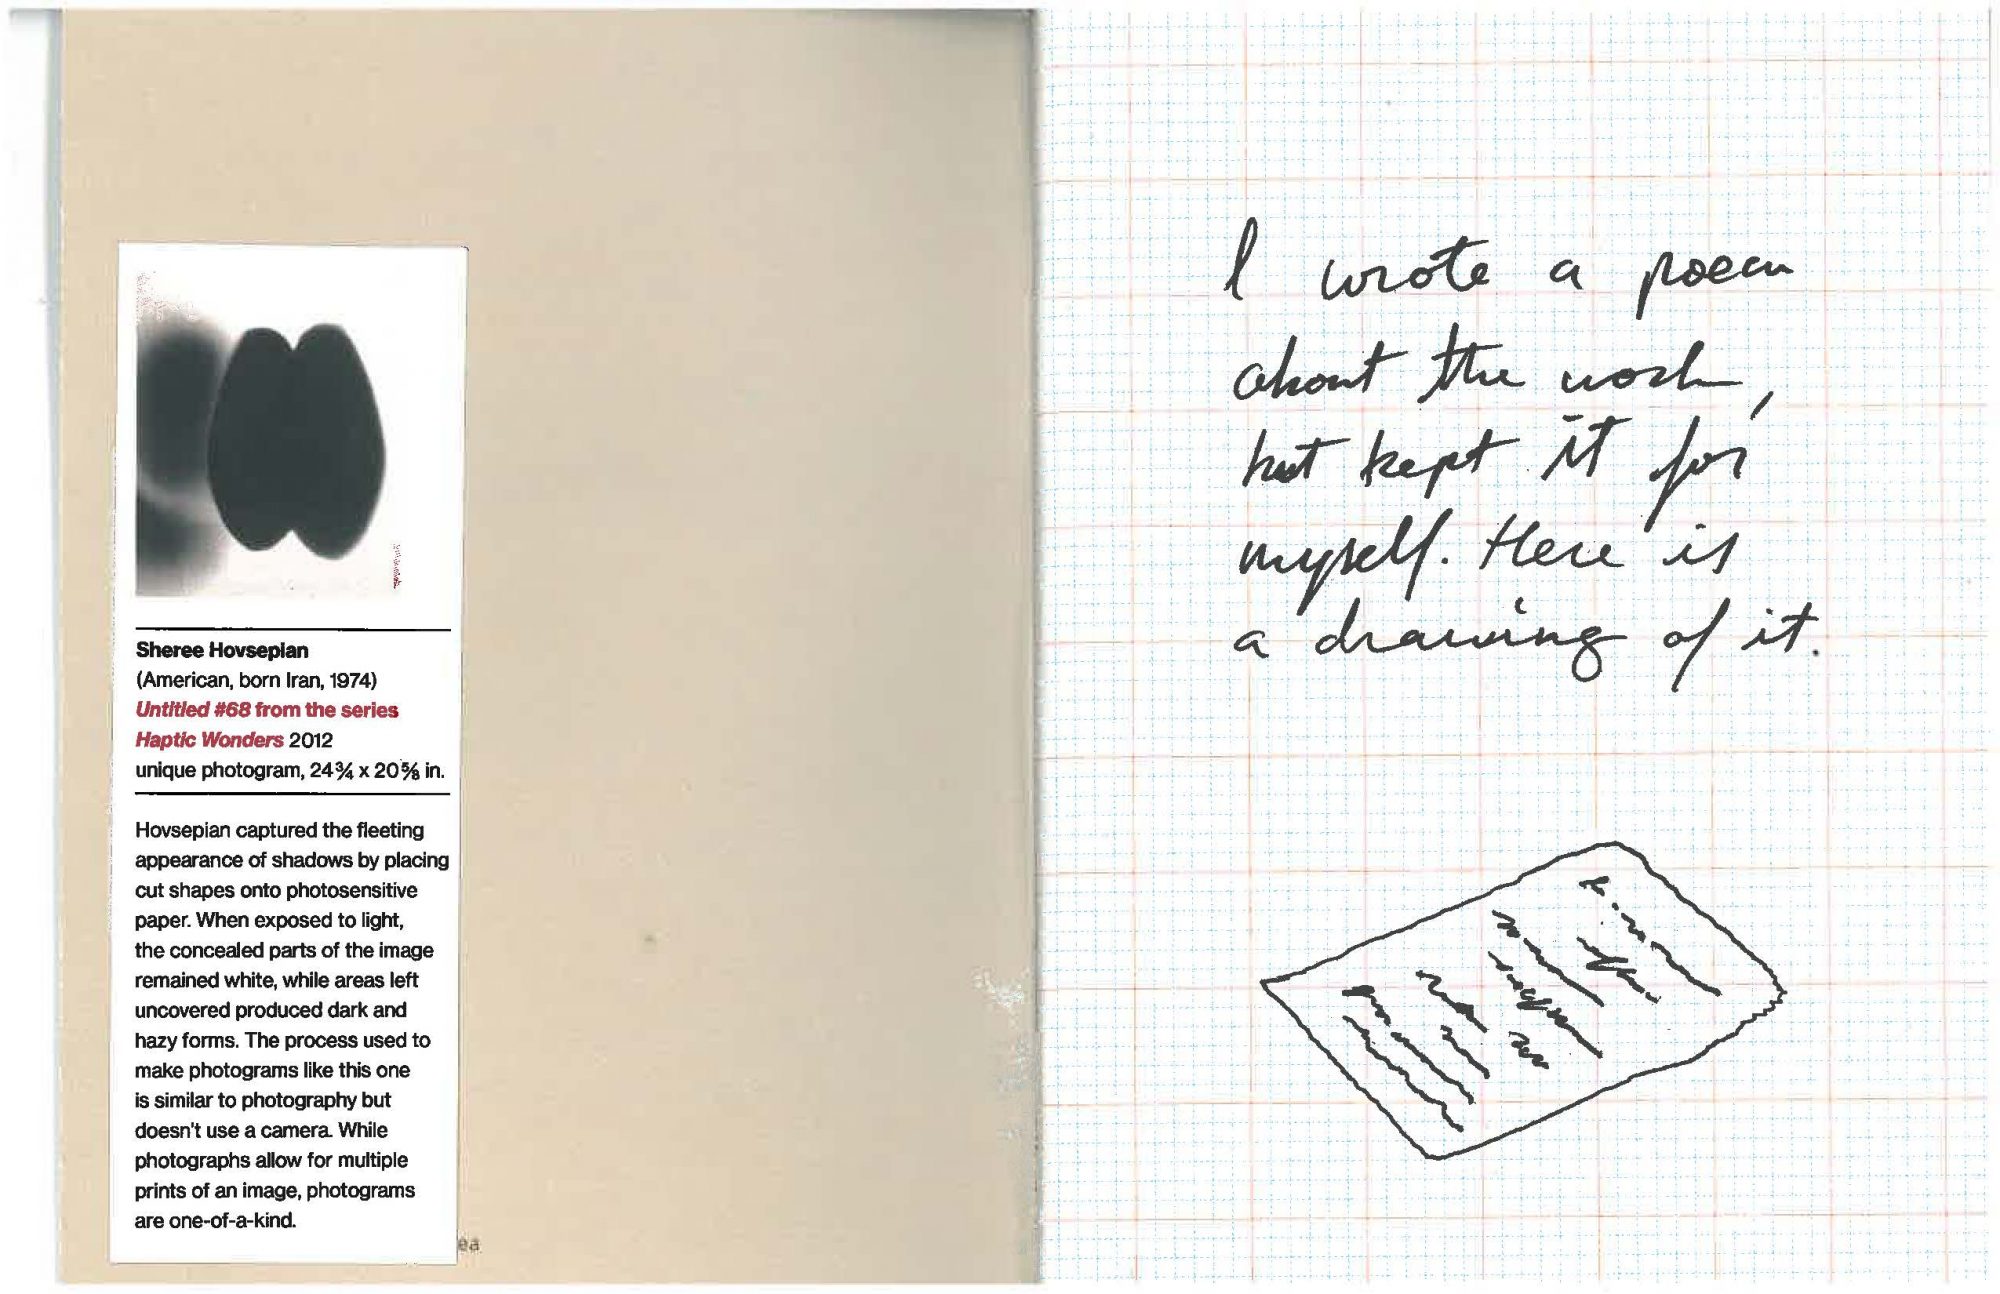 Sheree Hovsepian
(American, born Iran, 1974)
Untitled #68 from the series
Haptic Wonders 2012
unique photogram, 24¾ x 20⅝ in.
Hovsepian captured the fleeting
appearance of shadows by placing
cut shapes onto photosensitive
paper. When exposed to light,
the concealed parts of the image
remained white, while areas left
uncovered produced dark and
hazy forms. The process used to
make photograms like this one
is similar to photography but
doesn't use a camera. While
photographs allow for multiple
prints of an image, photograms
are one-of-a-kind.
ea
I wrote a poem
about the work,
but kept it for
myself. Here is
a drawing of it.